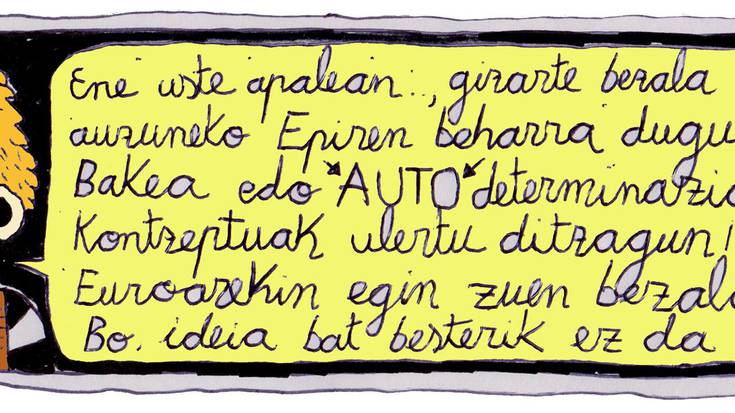 Ene uste apalean.., gizarte bezala
auzuneko Epiren beharra dugu
Bakea edo AUTOdeterminazio
Kontzeptuak ulertu ditzagun!
Euroarekin egin zuen bezala
Bo. ideia bat besterik ez da